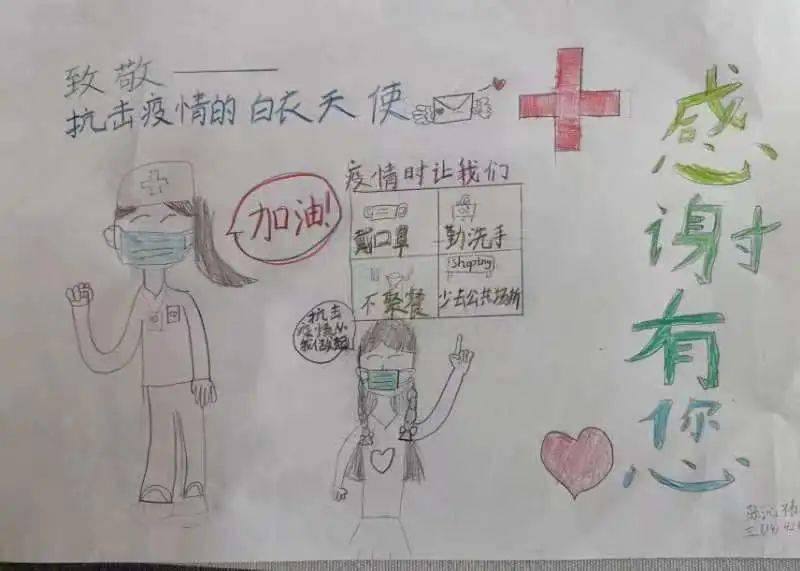 致敬———
抗击疫情的白衣天使
感谢有您
加油!
疫情时让我们
戴口罩
勤洗手
不聚餐
Shopping
少去公共场所
抗击
疫情从
我们做起